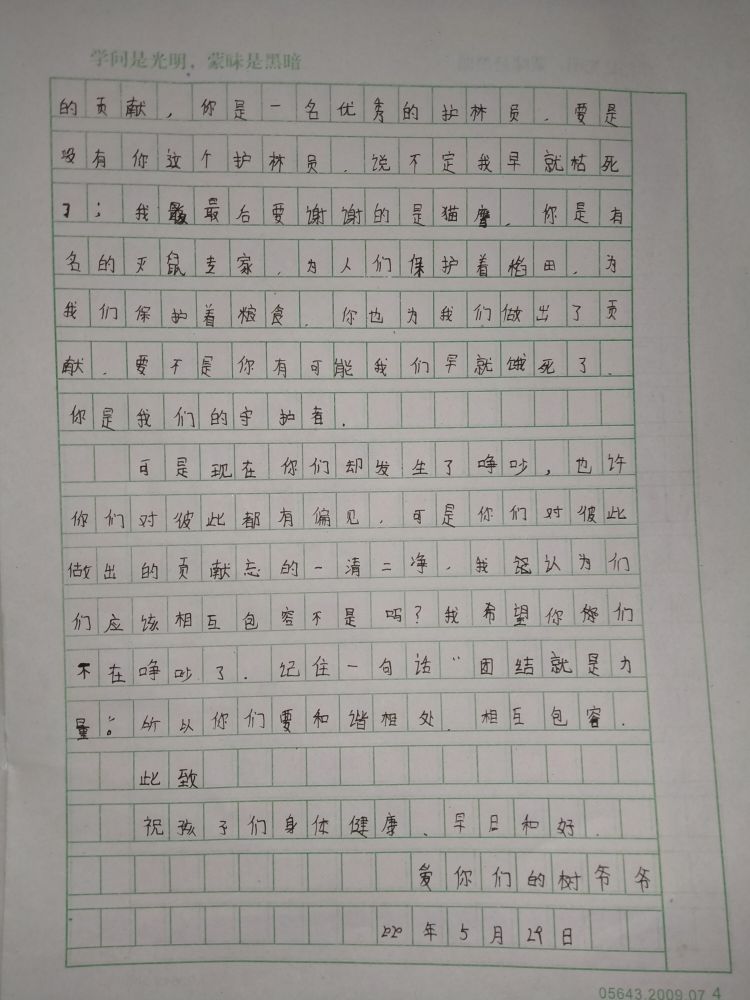 学问是光明，蒙昧是黑暗
的贡献，你是一名优秀的护林员．要是
没有你这个护林员．说不定我早就枯死
了；我最后要谢谢的是猫鹰．你是有
名的灭鼠专家．为人们保护着稻田．为
我们保护着粮食．你也为我们做出了贡
献．要不是你有可能我们早就饿死了．
你是我们的守护者．
可是现在你们却发生了睁吵，也许
你们对彼此都有偏见．可是你们对彼此
做出的贡献忘的一清二净．我认为们
们应该相互包容不是吗？我希望你们
不在睁吵了．记住一句话“团结就是力
量”。所以你们要和谐相处．相互包容．
此致
祝孩子们身体健康、早日和好．
爱你们的树爷爷
2020年5月29日
05643.2009.07 4